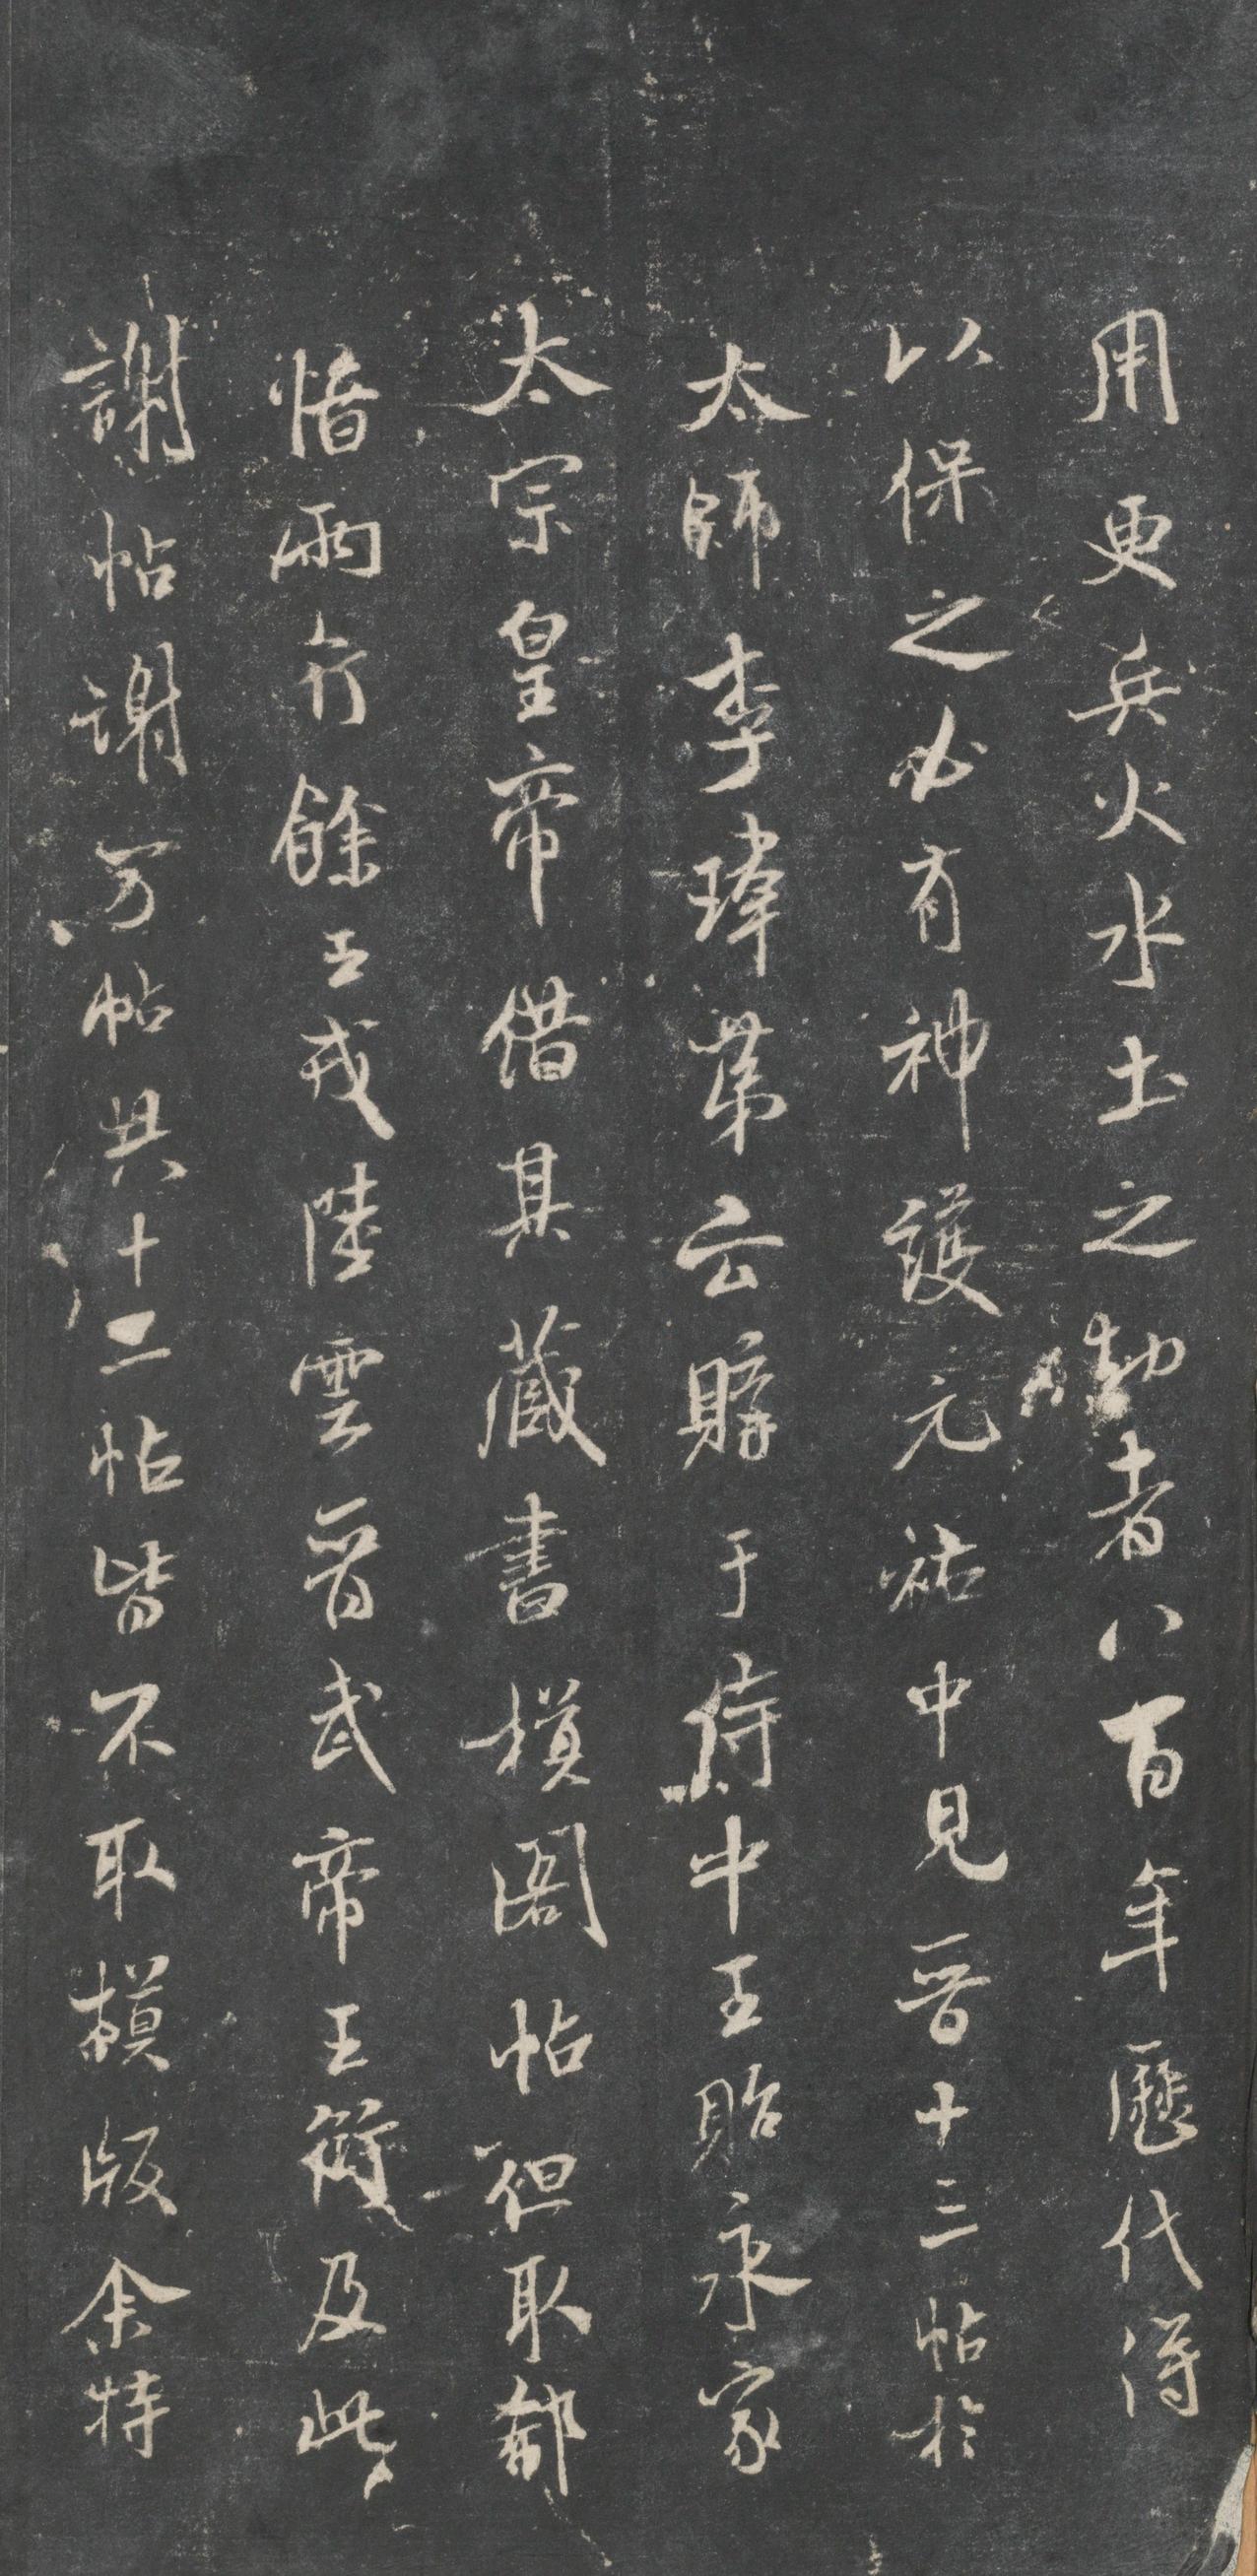 用更兵火水土之劫者八百年歷代得
以保之必有神護元祐中見晉十三帖於
太師李瑋第云購于侍中王貽永家
太宗皇帝借其藏書摸閣帖但取郗
愔兩行餘王戎陸雲晉武帝王衍及此
謝帖謝萬帖共十二帖皆不取摸版余特